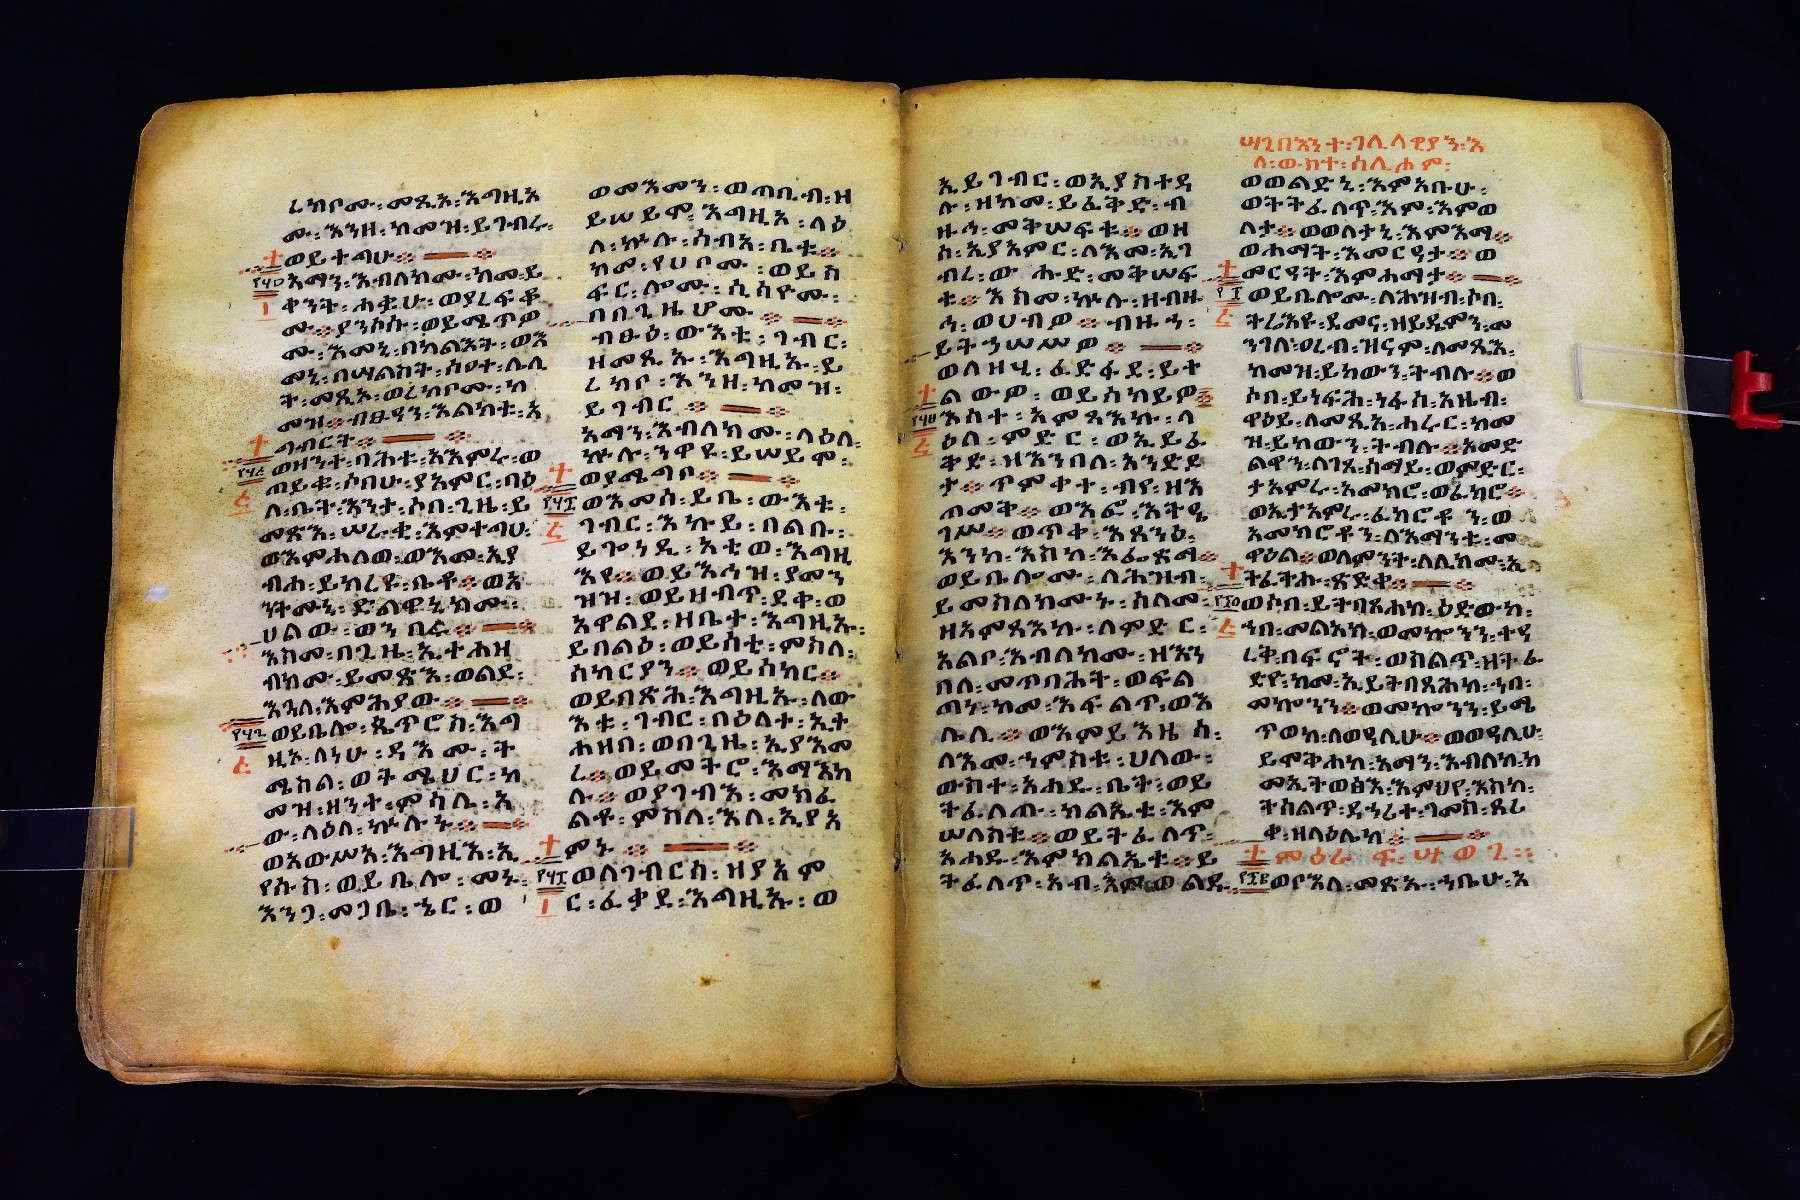 ረክቦሙ፡መጺኦ፡እግዚኦ
ሙ፡እንዘ፡ከመዝ፡ይገብሩ፡
ወይተግሁ።
አማን፡እብለክሙ፡ከመ፡ይ
ቀንት፡ሐቌሁ፡ወያረፍቆ
ሙ።ያንሶሱ፡ወይሜጥዎ
ሙ፡እመኒ፡በካልእት፡ወእ
መኒ፡በሣልስት፡ሰዐተ፡ሌሊ
ት፡መጺኦ፡ወረከቦሙ፡ከ
መዝ።ብፁዓን፡እልክቱ፡አ
ግብርት።
ወዘንተ፡ባሕቱ፡አእምሩ፡ወ
ጠይቁ፡ሶበሁ፡ያአምር፡በዕ
ለ፡ቤት፡እንተ፡ሶበ፡ጊዜ፡ይ
መጽእ፡ሠራቂ፡እምተግሀ፡
ወእምሐለወ፡ወእመ፡ኢያ
ብሐ፡ይክረዩ፡ቤቶ።ወአ
ንትሙኒ፡ድልዋኒክሙ፡
ሀልው፡ወንበሩ።
እስመ፡በጊዜ፡ኢተሐዝ
ብክሙ፡ይመጽእ፡ወልደ፡
እጓለ፡እምሕያው።
ወይቤሎ፡ጴጥሮስ፡እግ
ዚኦ፡ለነሁ፡ዳእሙ፡ት
ሜስል፡ወትሜህር፡ከ
መዝ፡ዘንተ፡ምሳሌ፡አ
ው፡ላዕለ፡ኵሉኑ።
ወአውሥአ፡እግዚእ፡ኢ
የሱስ፡ወይቤሎ፡መኑ፡
እንጋ፡መጋቤ፡ኄር፡ወ
ወመእመን፡ወጠቢብ፡ዘ
ይሠይሞ፡እግዚኡ፡ላዕ
ለ፡ኵሉ፡ሰብአ፡ቤቱ።
ከመ፡የሀቦሙ፡ወይስ
ፍር፡ሎሙ፡ሲሳዮሙ፡
በበጊዜሆሙ።
ብፁዕ፡ውእቱ፡ገብር፡
ዘመጺኡ፡እግዚኡ፡ይ
ረክቦ፡እንዘ፡ከመዝ፡
ይገብር።
አማን፡እብለክሙ፡ላዕለ፡
ኵሉ፡ንዋዩ፡ይሠይሞ፡
ወያሜግቦ።
ወእመሰ፡ይቤ፡ውእቱ፡
ገብር፡እኩይ፡በልቡ፡
ይጐነዲ፡አቲወ፡እግዚ
እየ።ወይእኅዝ፡ያመን
ዝዝ፡ወይዘብጥ፡ደቀ፡ወ
አዋልደ፡ዘቤተ፡እግዚኡ፡
ይበልዕ፡ወይሰቲ፡ምስለ፡
ሰካርያን።ወይሰክር።
ወይበጽሕ፡እግዚኡ፡ለው
እቱ፡ገብር፡በዕለተ፡ኢት
ሐዘበ፡ወበጊዜ፡ኢያእመ
ረ።ወይመትሮ፡እማእከ
ሉ።ወያገብእ፡መክፈ
ልቶ፡ምስለ፡እለ፡ኢየአ
ምኑ።
ወለገብርሰ፡ዘያአም
ር፡ፈቃደ፡እግዚኡ፡ወ
ኢይገብር፡ወኢያስተዳ
ሉ፡ዘከመ፡ይፈቅድ፡ብ
ዙኅ፡መቅሠፍቱ።ወዘ
ሰ፡ኢያአምር፡ለእመ፡ኢገ
ብረ፡ውሑድ፡መቅሠፍ
ቱ።እስመ፡ኵሉ፡ዘብዙ
ኅ፡ወሀብዎ።ብዙኅ፡
ይትኃሠሥዎ።
ወለዘሂ፡ፈድፋደ፡ይተ
ልውዎ፡ወይስከይዎ
እሳተ፡አምጻእኩ፡ላ
ዕለ፡ምድር፡ወኢይፈ
ቅድ፡ዘእንበለ፡እንድደ
ታ።ጥምቀተ፡ብየ፡ዘእ
ጠመቅ።ወእፎ፡እትዔ
ገሥ።ወጥቀ፡እጸንዕ፡
እንከ፡እስከ፡እፌጽማ።
ወይቤሎሙ፡ለሕዝብ፡
ይመስለክሙኑ፡ሰላመ፡
ዘአምጻእኩ፡ለምድር፡
አልቦ፡እብለክሙ፡ዘእን
በለ፡መጥባሕት፡ወፍል
ጠነ፡ከመ፡እፍልጥ፡ወእ
ሌሊ።ወእምይእዜሰ፡
ለእመ፡ኀምስቱ፡ሀለው፡
ውስተ፡አሐዱ፡ቤት፡ወይ
ትፈለጡ፡ክልኤቱ፡እም
ሠለስቱ።ወይትፈለጥ፡
አሐዱ፡እምክልኤቱ።ይ
ትፈለጥ፡አብ፡እምወልዱ
ሣ፯በእንተ፡ገሊላዊያን፡እ
ለ፡ውስተ፡ሰሊሖም፡
ወወልድኒ፡እምአቡሁ፡
ወትትፈለጥ፡እም፡እምወ
ለታ።ወወለታኒ፡እምእማ።
ወሐማት፡እመርዓታ።ወ
መርዓት፡እምሐማታ።
ወይቤሎሙ፡ለሕዝብ፡ሶበ፡
ትሬእዩ፡ደመና፡ዘይዴምን፡መ
ንገለ፡ዐረብ፡ዝናም፡ለመጺእ፡
ከመዝ፡ይከውን፡ትብሉ።ወ
ሶበ፡ይነፍሕ፡ነፋስ፡አዜብ፡
ዋዕይ፡ለመጺእ፡ሐሩር፡ከመ
ዝ፡ይከውን፡ትብሉ።አመድ
ልዋን፡ለገጸ፡ሰማይ፡ወምድር፡
ታአምሩ፡አመክሮ፡ወፈክሮ።
ወኢታአምሩ፡ፈክሮቶን፡ወ
አመክሮቶን፡ለእማንቱ፡መ
ዋዕል።ወለምንት፡ለሊክሙ፡ኢ
ትፈትሑ፡ጽድቀ።
ወሶበ፡ይትባአሐከ፡ዕድውከ፡
ኀበ፡መልአክ፡ወመኰንን፡ተዓ
ረቅ፡በፍኖት፡ወከልጥ፡ዘትፈ
ድዮ፡ከመ፡ኢይትባጻሕከ፡ኀበ፡
መኰንን።ወመኰንን፡ይሜ
ጥወከ፡ለወዓሊሁ።ወወዓሊሁ፡
ይሞቅሐከ፡አማን፡እብለከ፡ከ
መ፡ኢትወፅእ፡እምህየ፡እስከ፡
ትከልጥ፡ዓኅሪተ፡ገመስ፡ጸሪ
ቀ፡ዘላዕሌከ።
ምዕራፍ፡
ወቦእለ፡መጽኡ፡ኀቤሁ፡አ